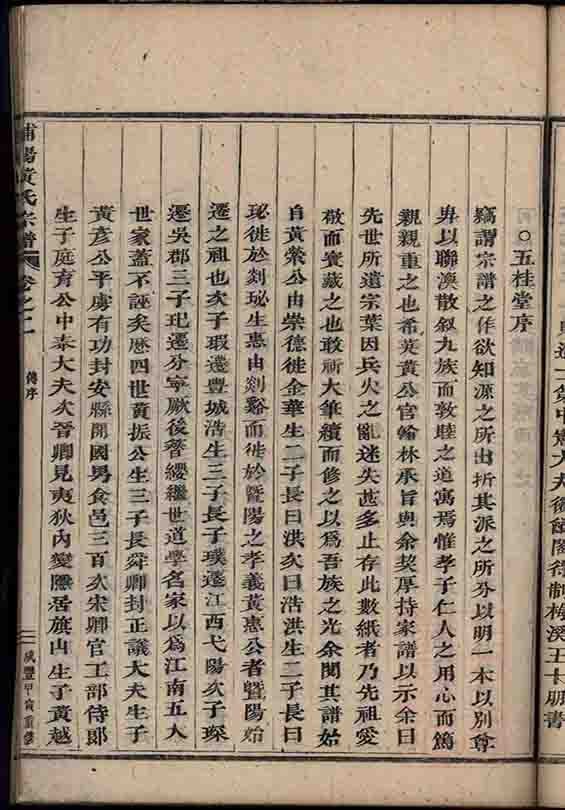 進士第中憲大夫徳館閣待制梅溪王十朋書
○五桂堂序
竊謂宗譜之作欲知源之所出折其派之所分以明一本以別尊
卑以聯渙散叙九族而敦睦之道寓焉惟孝子仁人之用心而篤
親親重之也希英黄公官翰林承旨與余契厚持家譜以示余曰
先世所遺宗葉因兵火之亂迷失甚多止存此數紙者乃先祖愛
敬而寶藏之也敢祈大筆續而修之以爲吾族之光余閱其譜始
自黄公由崇德徙金華生二子長曰洪次曰浩洪生二子長曰
珌徙於剡珌生惠由剡谿而徙於暨陽之孝義黄惠公者暨陽始
遷之祖也次子瑕遷豐城浩生三子長子璞遷江西弋陽次子琛
遷吳郡三子玘遷分寧厥後簪纓繼世道學名家以爲江南五大
世家蓋不誣矣歷四世黄振公生三子長舜卿封正議大夫生子
黄彦公平虜有功封安縣開國男食邑三百次宋卿官工部侍郎
生子庭育公中泰大夫次晉卿見夷狄內變隱居旗山生子黄越
浦陽黄氏宗譜 卷之二 傳序 咸豐甲寅重修